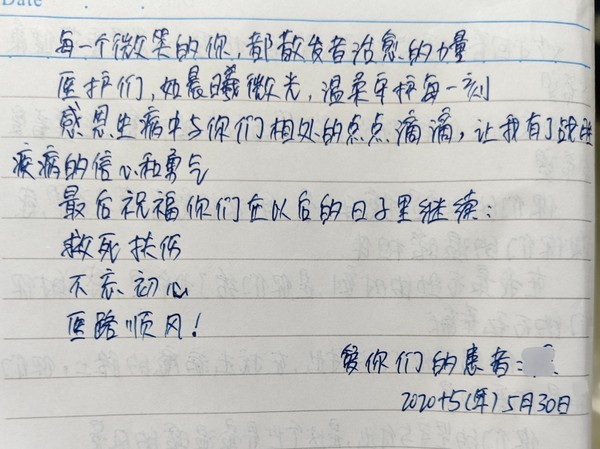 Date
每一个微笑的你，都散发着治愈的力量
医护们，如晨曦微光，温柔守护每一刻
感恩生病中与你们相处的点点滴滴，让我有了战胜
疾病的信心和勇气
最后祝福你们在以后的日子里继续：
救死扶伤
不忘初心
医路顺风！
爱你们的患者：
2020+5(年)5月30日